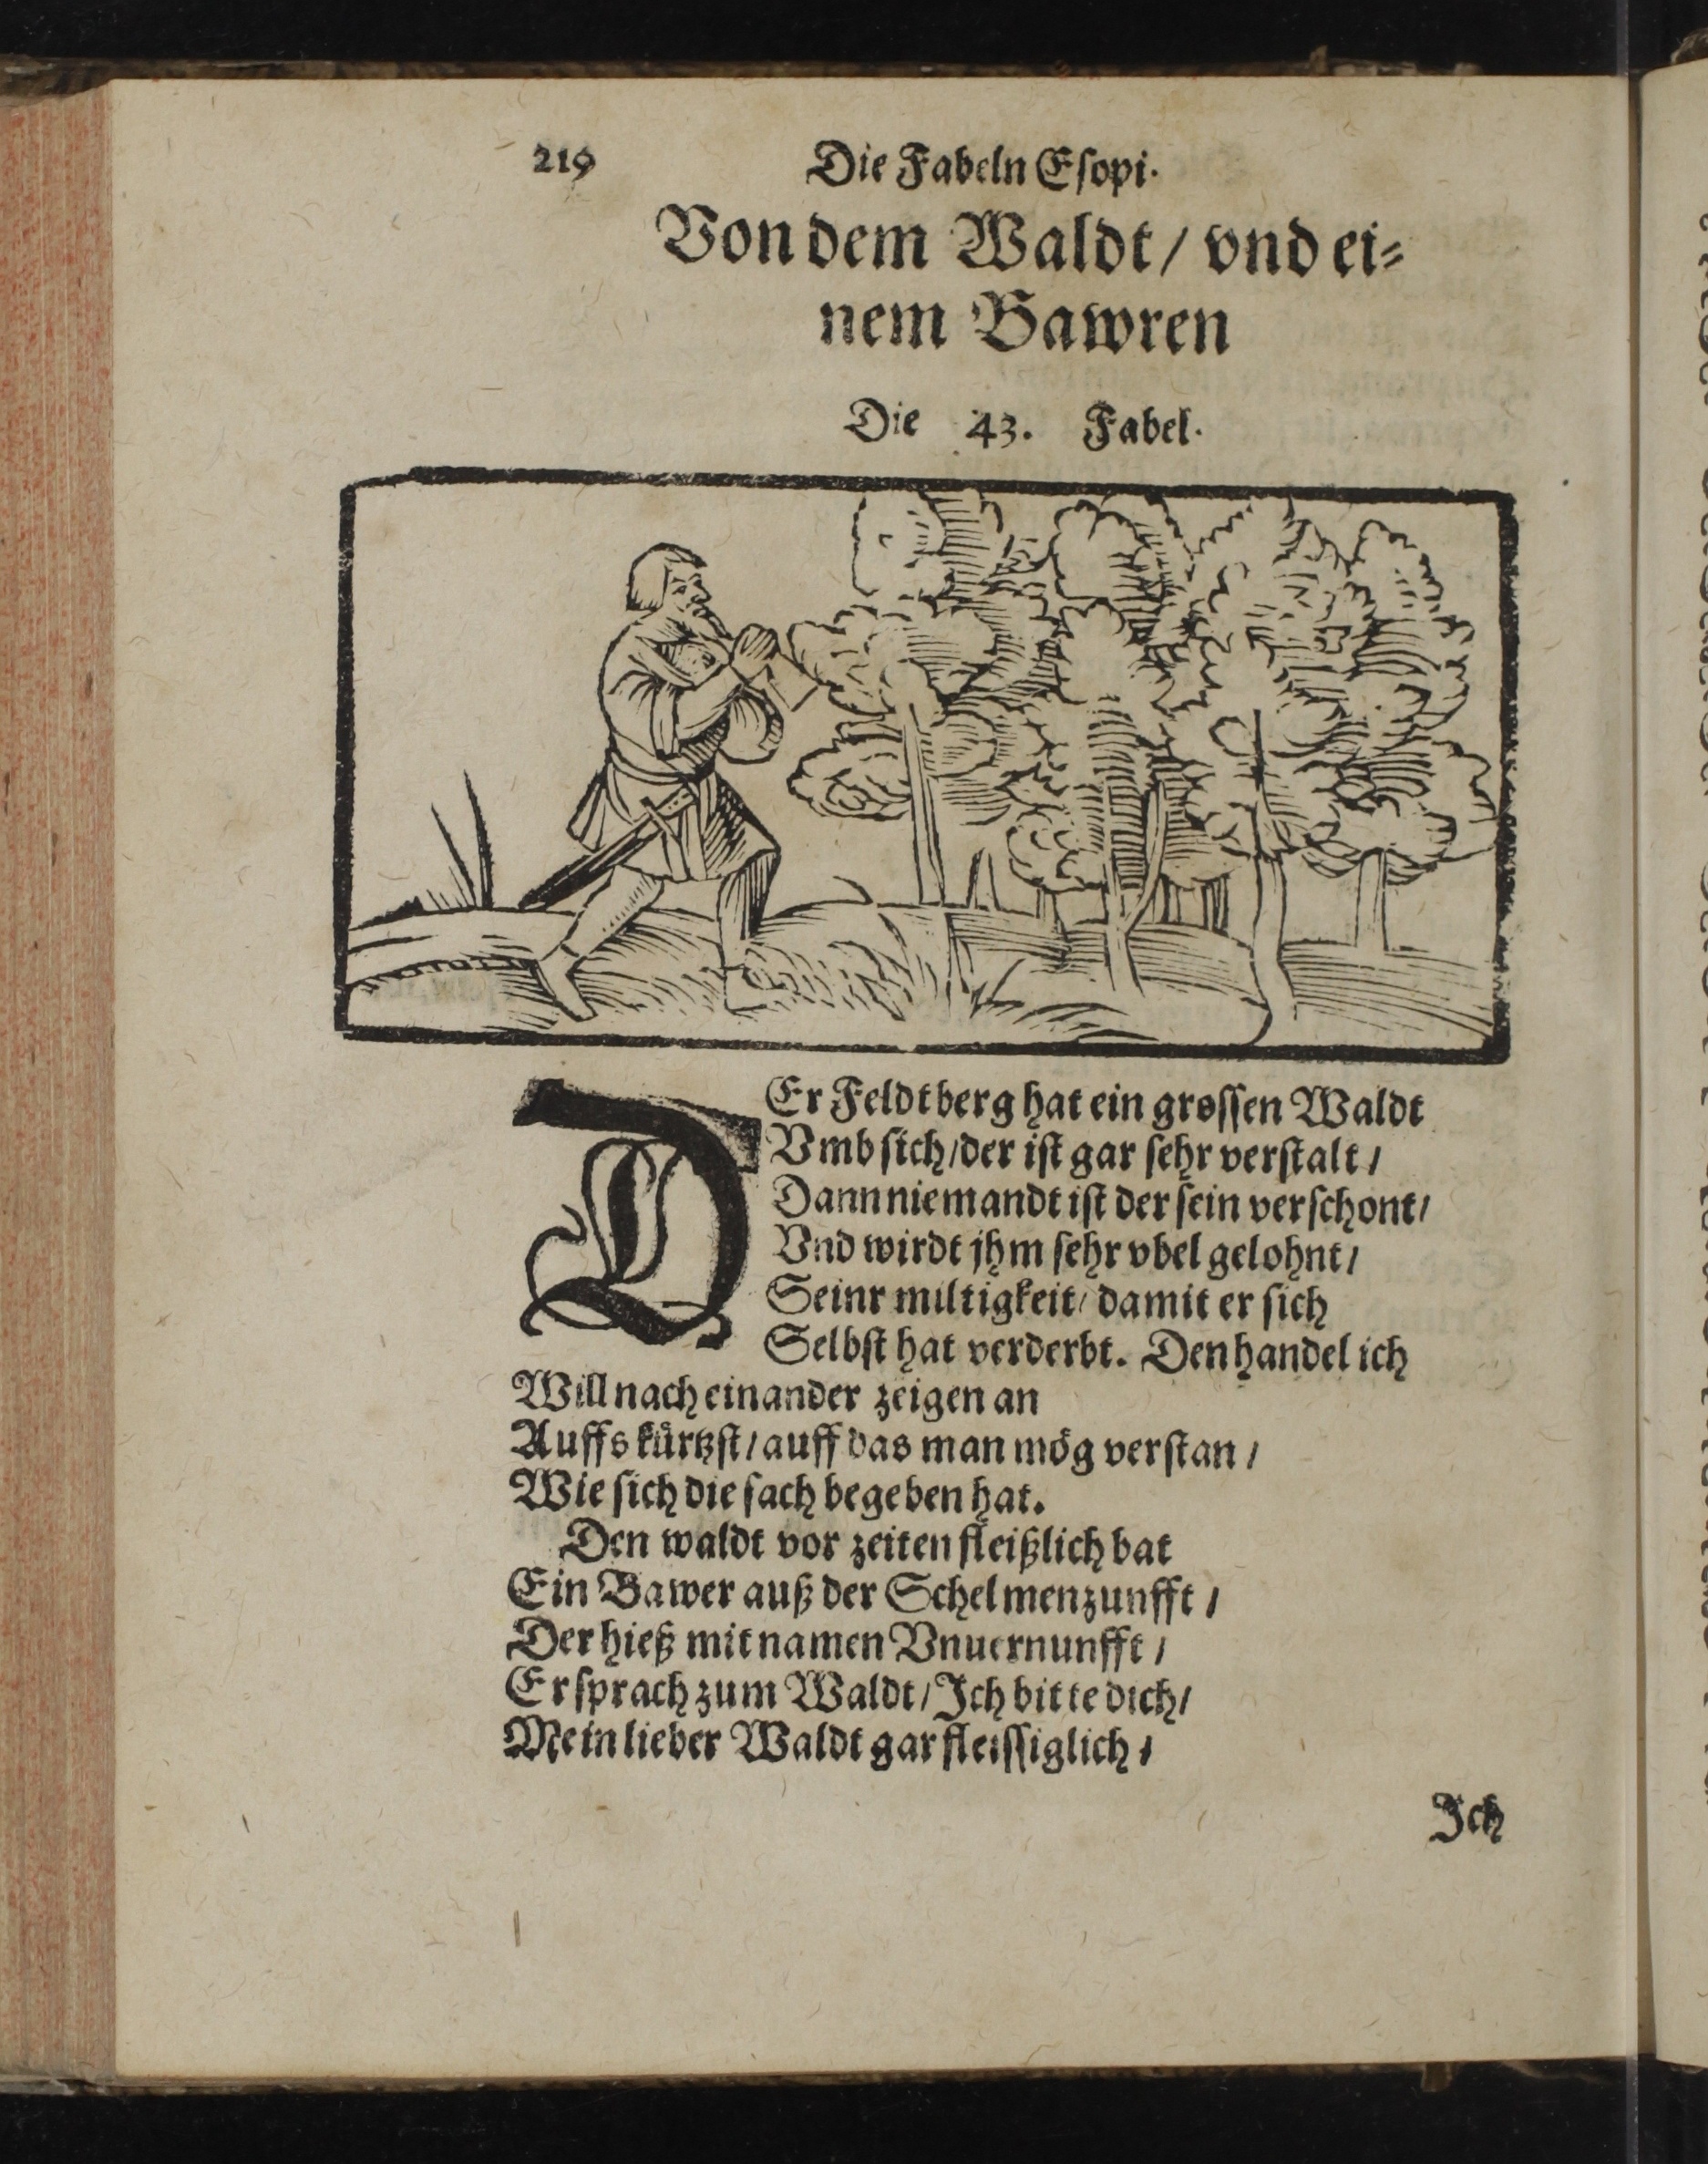 219 Die Fabeln Eſopi.
Von dem Waldt / vnd ei⸗
nem Bawren
Die 43. Fabel.
DEr Feldtberg hat ein groſſen Waldt
Vmb ſich / der iſt gar ſehr verſtalt /
Dann niemandt iſt der ſein verſchont /
Vnd wirdt jhm ſehr vbel gelohnt /
Seinr miltigkeit / damit er ſich
Selbſt hat verderbt. Den handel ich
Will nach einander zeigen an
Auffs kuͤrtzſt / auff das man moͤg verſtan /
Wie ſich die ſach begeben hat.
Den waldt vor zeiten fleißlich bat
Ein Bawer auß der Schelmenzunfft /
Der hieß mit namen Vnuernunfft /
Er ſprach zum Waldt / Ich bitte dich /
Mein lieber Waldt gar fleiſſiglich /
Ich